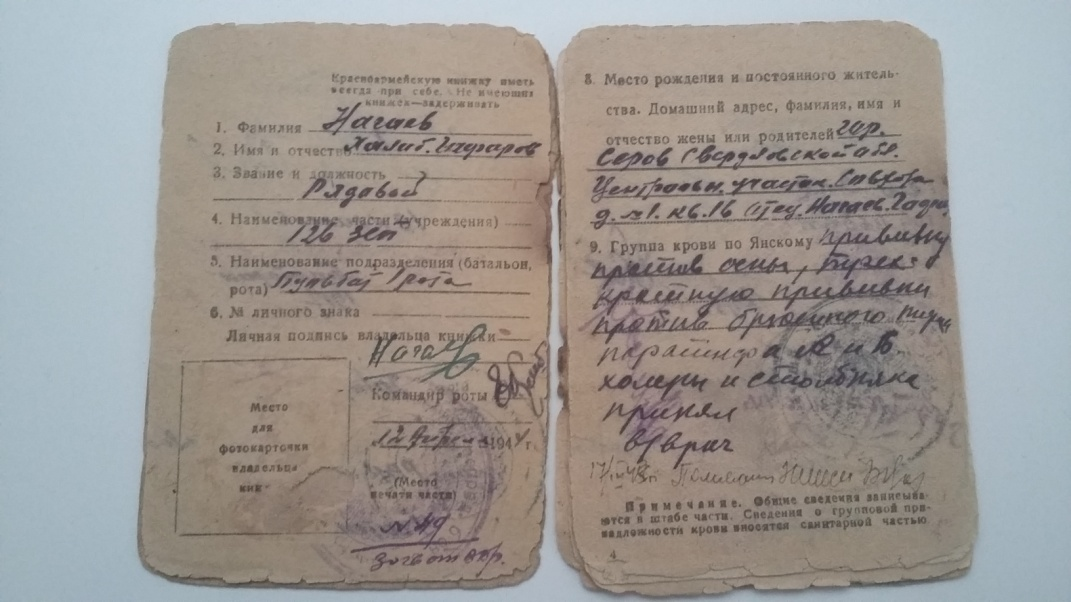 Красноармейскую книжку иметь
всегда при себе. Не имеющих
книжек—задерживать
1. Фамилия Нагаев
2. Имя и отчество
3. Звание и должность
Рядовой
4. Наименование части (учреждения)
126 зсп
5. Наименование подразделения (батальон,
рота) Пульбат рота
6. № личного знака
Личная подпись владельца книжки
Нагаев
Командир роты
12 1944 г.
Место
для
фотокарточки
владельца
книж-
(Место
печати части)
8. Место рождения и постоянного житель-
ства. Домашний адрес, фамилия, имя и
отчество жены или родителей гор.
Серов Свердловской обл.
участок
д. №1. кв. 16 отец. Нагаев.
9. Группа крови по Янскому прививку
против оспы, трех-
кратную прививки
против брюшного тифа
паратифа А и Б
холеры и столбняка
принял
в/врач
Примечание. Общие сведения записыва-
ются в штабе части. Сведения о групповой при-
надлежности крови вносятся санитарной частью
4